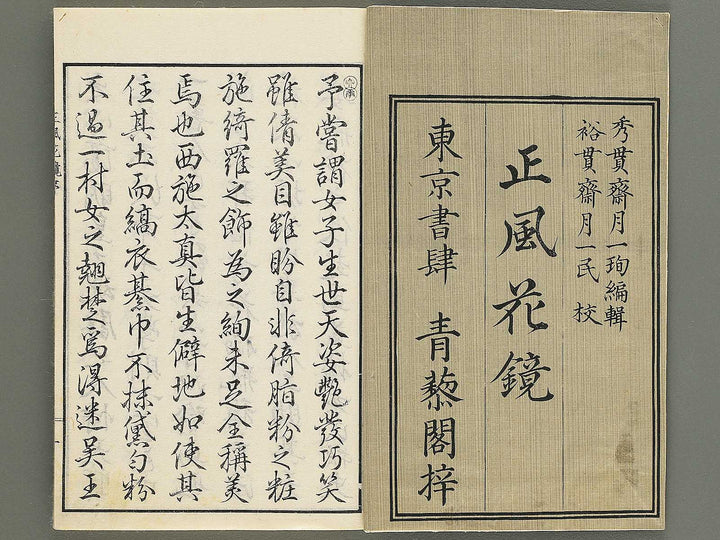 秀貫齋月一珣編輯
裕貫齋月一民 校
正風花鏡
東京書肆 青藜閣梓
予嘗謂女子生世天姿艷發巧笑
雖倩美目雖盼自非倚脂粉之粧
施綺羅之飾為之絢未足全稱美
焉也西施太真皆生僻地如使其
住其土而縞衣綦巾不抹黛勻粉
不過一村女之翹楚焉得迷吳王
正風花鏡